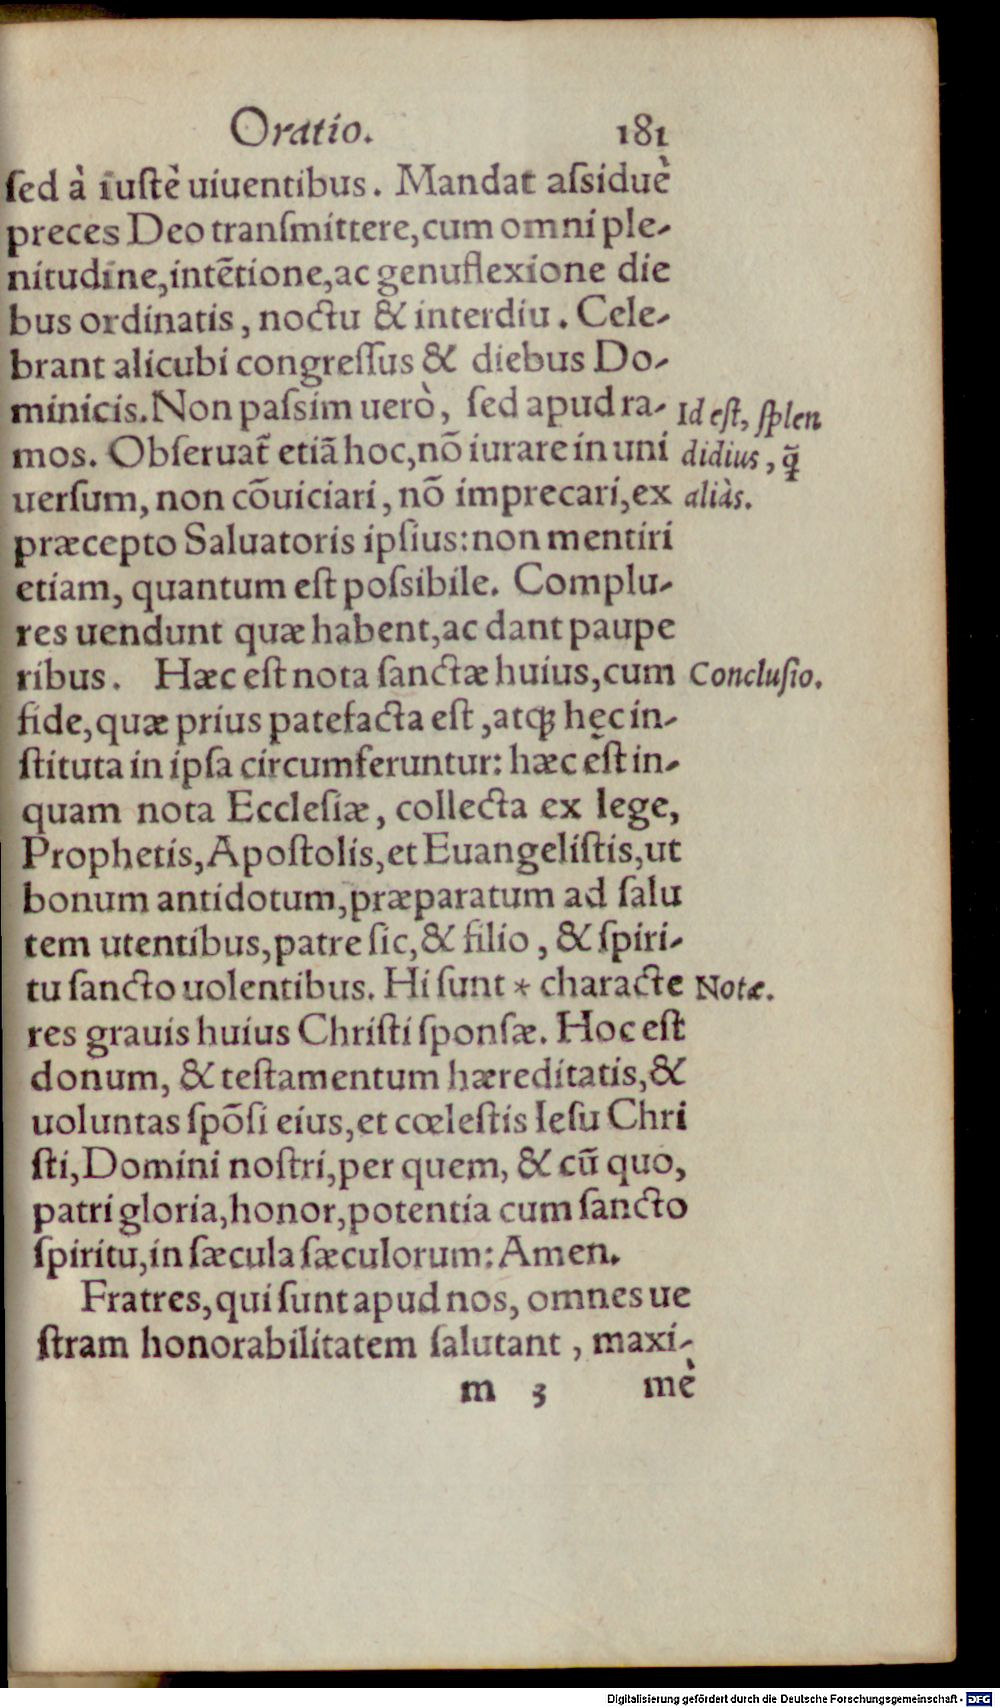 Oratio. 181
ſed à iuſtè uiuentibus. Mandat aſsiduè
preces Deo tranſmittere, cum omni ple-
nitudine, intẽtione, ac genuflexione die
bus ordinatis, noctu & interdiu. Cele-
brant alicubi congreſſus & diebus Do-
minicis. Non paſsim uerò, ſed apud ra-
Id eſt, ſplen
mos. Obſeruat̃ etiã hoc, nõ iurare in uni
didius, q̃
uerſum, non cõuiciari, nõ imprecari, ex
aliàs.
præcepto Saluatoris ipſius: non mentiri
etiam, quantum eſt poſsibile. Complu-
res uendunt quæ habent, ac dant paupe
ribus. Hæc eſt nota ſanctæ huius, cum
Concluſio.
fide, quæ prius patefacta eſt, atq; hęc in-
ſtituta in ipſa circumferuntur: hæc eſt in-
quam nota Eccleſiæ, collecta ex lege,
Prophetis, Apoſtolis, et Euangeliſtis, ut
bonum antidotum, præparatum ad ſalu
tem utentibus, patre ſic, & filio, & ſpiri-
tu ſancto uolentibus. Hi ſunt * characte
Notæ.
res grauis huius Chriſti ſponſæ. Hoc eſt
donum, & teſtamentum hæreditatis, &
uoluntas ſpõſi eius, et cœleſtis Ieſu Chri
ſti, Domini noſtri, per quem, & cũ quo,
patri gloria, honor, potentia cum ſancto
ſpiritu, in ſæcula ſæculorum: Amen.
Fratres, qui ſunt apud nos, omnes ue
ſtram honorabilitatem ſalutant, maxi-
m 3 mè
Digitalisierung gefördert durch die Deutsche Forschungsgemeinschaft - DFG